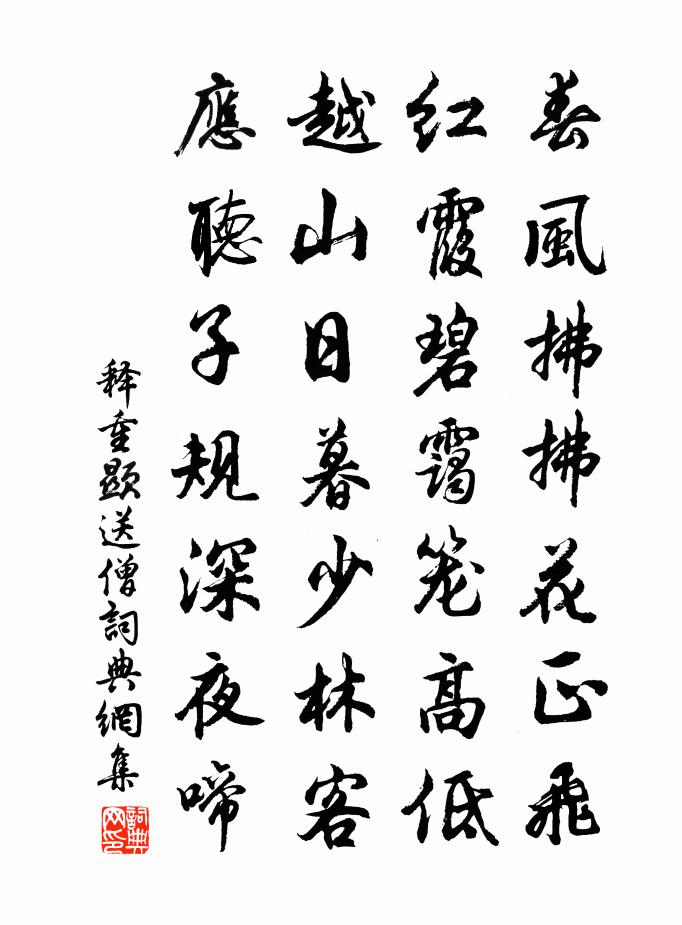 春風拂拂花正飛
红霞碧靄笼高低
越山日暮少林客
應聽子規深夜啼
释重顯送僧詞典網集
詞典网印